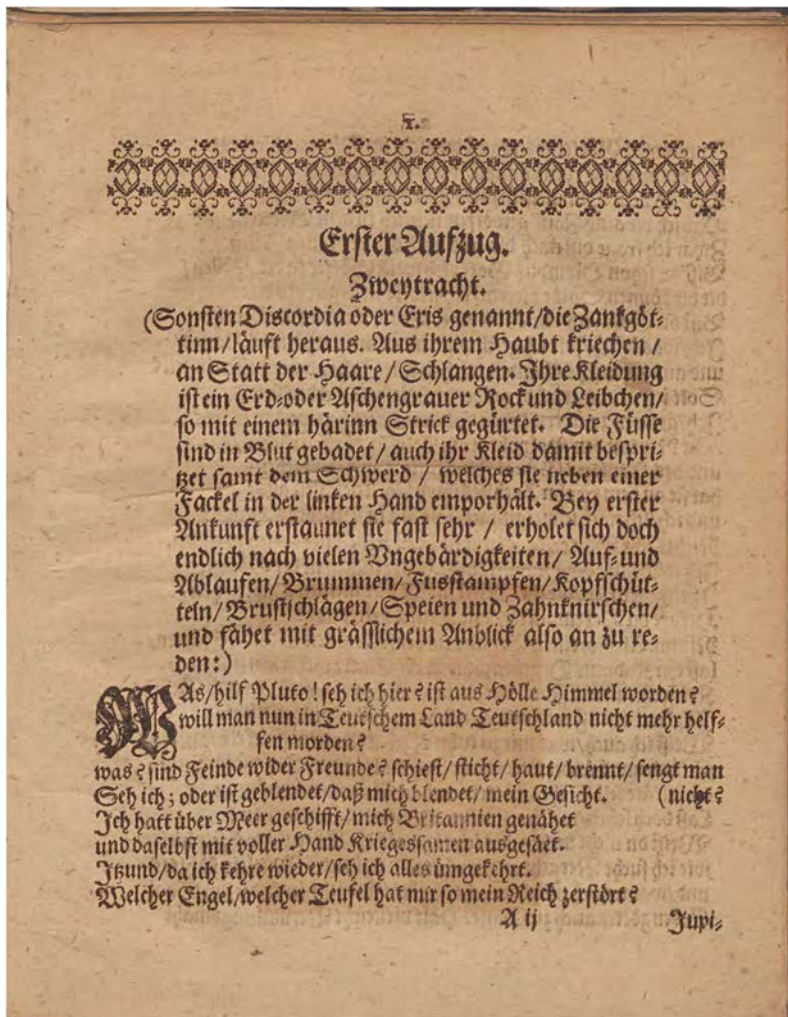 1.
Erster Aufzug.
Zweytracht.
(Sonsten Discordia oder Eris genannt/die Zankgöt-
tinn/läuft heraus. Aus ihrem Haubt kriechen/
an Statt der Haare/Schlangen. Ihre Kleidung
ist ein Erd-oder Aschengrauer Rock und Leibchen/
so mit einem härinn Strick gegürtet. Die Füsse
sind in Blut gebadet/auch ihr Kleid damit bespri-
tzet samt dem Schwerd/ welches sie neben einer
Fackel in der linken Hand emporhält. Bey erster
Ankunft erstaunet sie fast sehr / erholet sich doch
endlich nach vielen Vngebärdigkeiten/ Auf-und
Ablaufen/Brummen/Fusstampfen/Kopfschüt-
teln/Brustschlägen/Speien und Zahnknirschen/
und fähet mit grässlichem Anblick also an zu re-
den:)
WAs/hilf Pluto! seh ich hier? ist aus Hölle Himmel worden?
will man nun in Teutschem Land Teutschland nicht mehr helf-
fen morden?
was? sind Feinde wider Freunde? schiest/sticht/haut/brennt/sengt man
Seh ich; oder ist geblendet/daß mich blendet/mein Gesicht. (nicht?
Ich hatt über Meer geschifft/mich Britannien genähet
und daselbst mit voller Hand Kriegessamen ausgesäet.
Itzund/da ich kehre wieder/seh ich alles ümgekehrt.
Welcher Engel/welcher Teufel hat mir so mein Reich zerstört?
A ij Jupi-